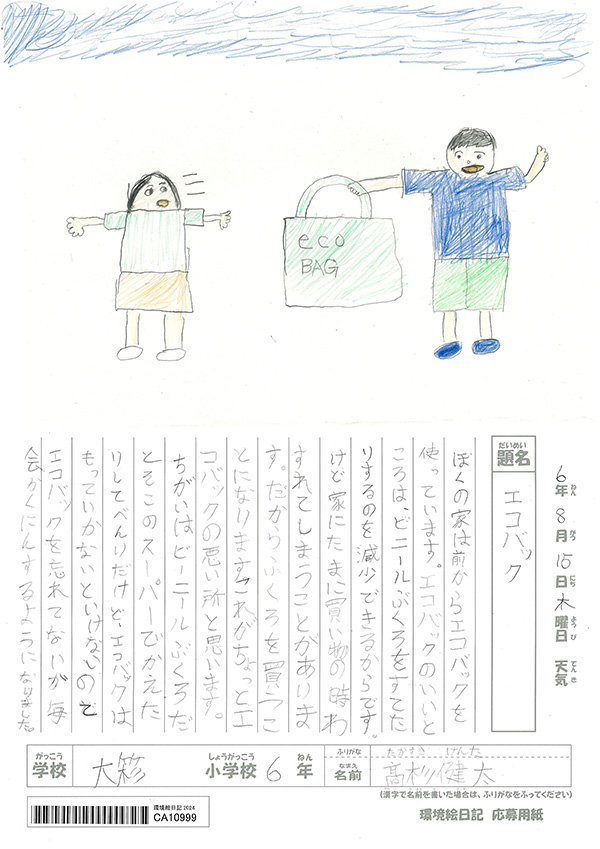 eco
BAG
6年 8月 15日 木曜日 天気
ねん がつ にち ようび てんき
だいめい
題名
エコバック
ぼくの家は前からエコバックを
使っています。エコバックのいいと
ころは、ビニールぶくろをすてた
りするのを減少できるからです。
けど家にたまに買い物の時わ
すれてしまうことがありま
す。だからふくろを買うこ
とになりますこれがちょっとエ
コバックの悪い所と思います。
ちがいはビニールぶくろだ
とそこのスーパーでかえた
りしてべんりだけど、エコバックは
もっていかないといけないので
エコバックを忘れてないか毎
会かくにんするようになりました。
がっこう しょうがっこう ねん ふりがな たかすぎ けんた
学校 大彩 小学校 6年 なまえ 名前 高杉健太
(漢字で名前を書いた場合は、ふりがなをふってください)
環境絵日記 応募用紙
環境絵日記2024
CA10999